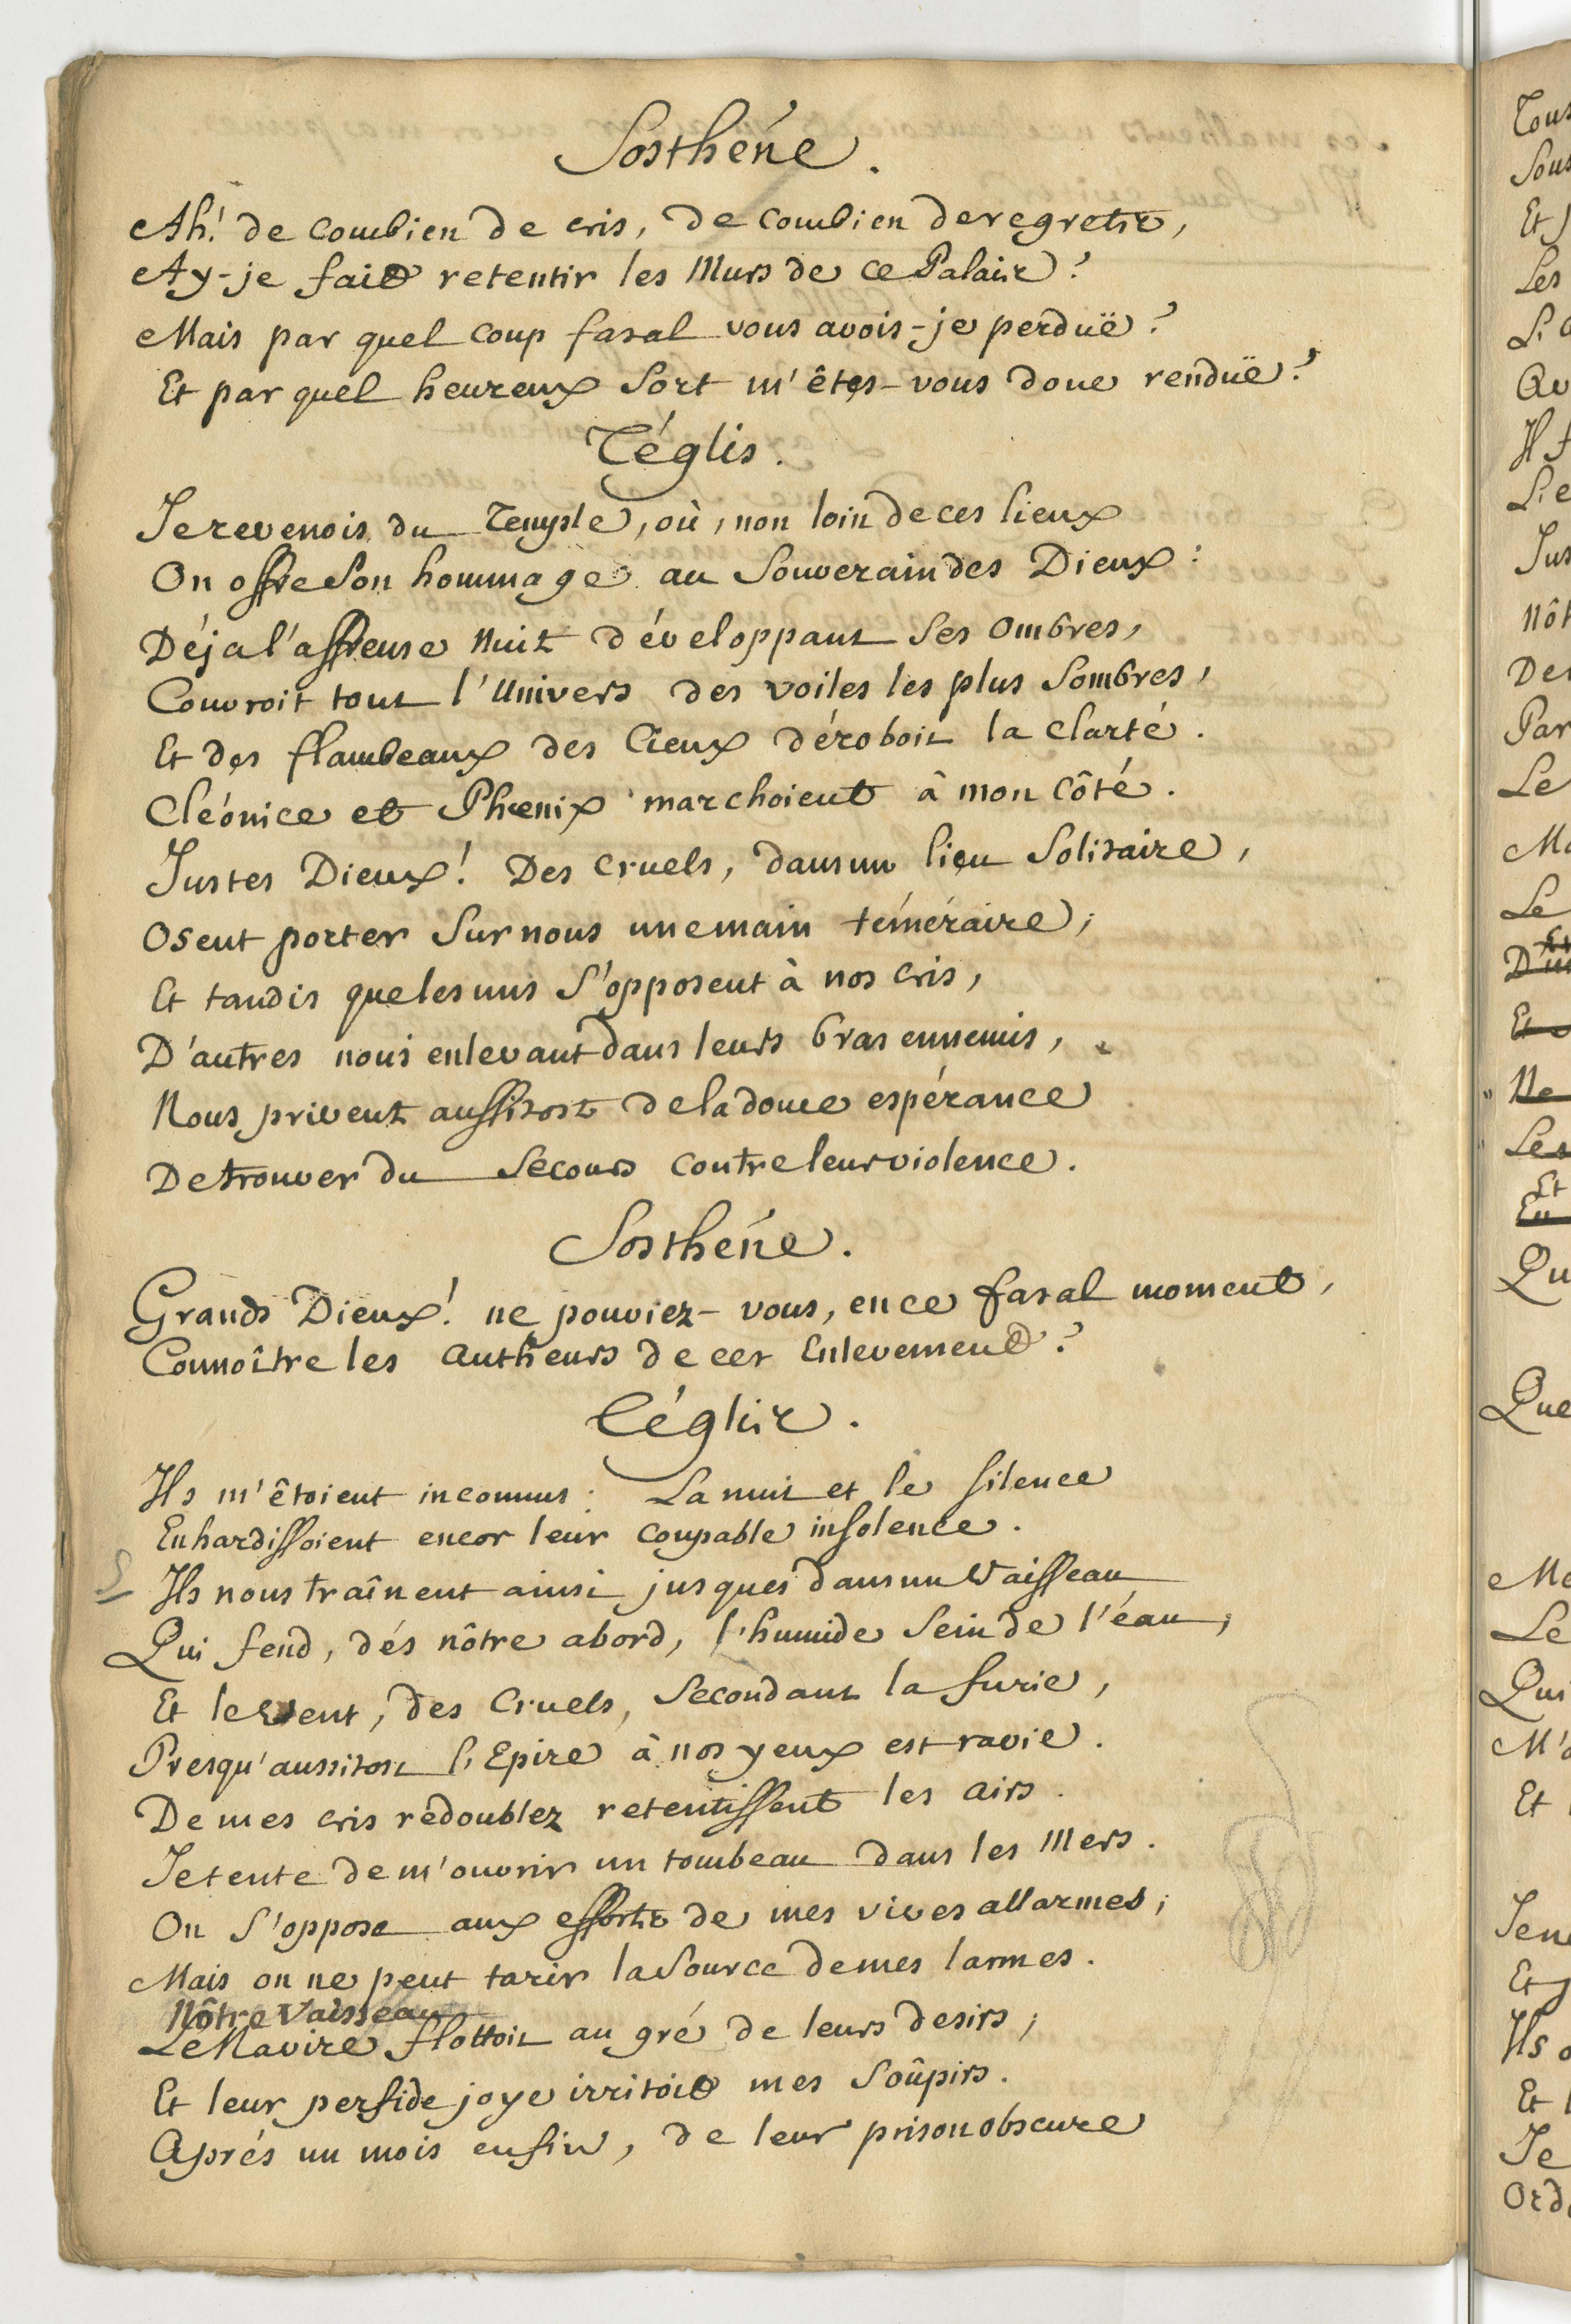 Sosthéne.
Ah! de combien de cris, de combien de regrets,
Ay-je fait retentir les Murs de ce Palais?
Mais par quel coup fatal vous avois-je perduë?
Et par quel heureux Sort m'êtes-vous donc renduë?
Téglis.
Je revenois du Temple, où, non loin de ces lieux
On offre Son hommage au Souverain des Dieux:
Déja l'affreuse Nuit dévelopant ses Ombres,
Couvroit tout l'Univers des voiles les plus Sombres,
Et des flambeaux des Cieux déroboit la Clarté.
Cléonice et Phœnix marchoient à mon Côté.
Justes Dieux! Des Cruels, dans un lieu Solitaire,
Osent porter Sur nous une main téméraire;
Et tandis que les uns S'opposent à nos cris,
D'autres nous enlevant dans leurs bras ennemis,
Nous privent aussitost de la douce espérance
De trouver du Secours contre leur violence.
Sosthéne.
Grands Dieux! ne pouviez-vous, en ce fatal moment,
Connoître les Autheurs de cet Enlevement?
Téglis.
Ils m'êtoient inconnus: La nuit et le silence
Enhardissoient encor leur coupable insolence.
Ils nous traînent ainsi jusques dans un Vaisseau
Qui fend, dés nôtre abord, l'humide Sein de l'éau,
Et le Vent, des Cruels, Secondant la furie,
Presqu'aussitost l'Epire à nos yeux est ravie.
De mes cris redoublez retentissent les airs.
Je tente de m'ouvrir un tombeau dans les Mers.
On S'oppose aux efforts de mes vives allarmes;
Mais on ne peut tarir la Source de mes larmes.
Nôtre Vaisseau
Le Navire flottoit au gré de leurs desirs,
Et leur perfide joye irritoit mes Soûpirs.
Aprés un mois enfin, de leur prison obscure